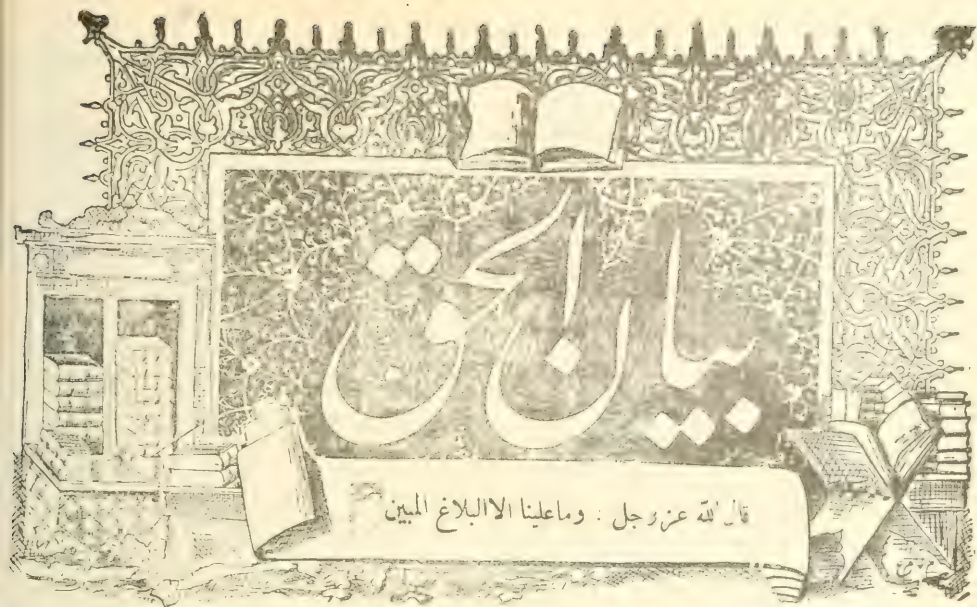 بيان الحق
قال الله عز وجل : وما علينا الا البلاغ المبين